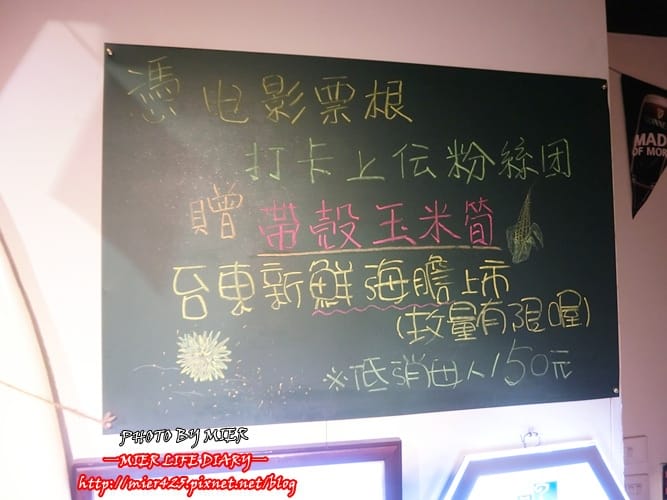 憑电影票根
打卡上伝粉絲团
贈 帶殼玉米筍
台東新鮮海膽上市
(数量有限喔)
※低消每人150元
GUINNESS
MADE
OF MORE
PHOTO BY MIER
—MIER LIFE DIARY—
http://mier427.pixnet.net/blog